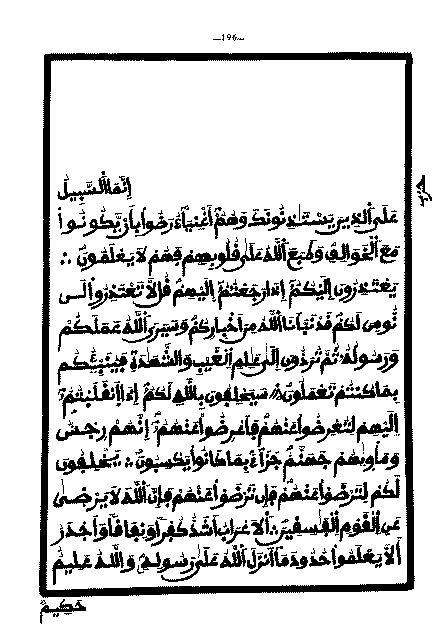 —196—
حزب
إِنَّمَا اَلسَّبِيلُ
عَلَى اَلذِينَ يَسْتَـٰذِنُونَكَ وَهُمُۥٓ أَغْنِيَآءُ رَضُوا۟ بِأَنْ يَّكُونُوا۟
مَعَ اَلْخَوَالِفِ وَطَبَعَ اَللَّهُ عَلَىٰ قُلُوبِهِمْ فَهُمْ لَا يَعْلَمُونَ ؞
يَعْتَذِرُونَ إِلَيْكُمُۥٓ إِذَا رَجَعْتُمُۥٓ إِلَيْهِمْ قُل لَّا تَعْتَذِرُوا۟ لَن
نُّومِنَ لَكُمْ قَدْ نَبَّأَنَا اَللَّهُ مِنَ اَخْبَارِكُمْ وَسَيَرَى اَللَّهُ عَمَلَكُمْ
وَرَسُولُهُۥ ثُمَّ تُرَدُّونَ إِلَىٰ عَـٰلِمِ اِلْغَيْبِ وَالشَّهَـٰدَةِ فَيُنَبِّئُكُم
بِمَا كُنتُمْ تَعْمَلُونَ ؞ سَيَحْلِفُونَ بِاللَّهِ لَكُمُۥٓ إِذَا اَنقَلَبْتُمُۥٓ
إِلَيْهِمْ لِتُعْرِضُوا۟ عَنْهُمْ فَأَعْرِضُوا۟ عَنْهُمُۥٓ إِنَّهُمْ رِجْسٌ
وَمَأْوِيٰهُمْ جَهَنَّمُ جَزَآءً بِمَا كَانُوا۟ يَكْسِبُونَ ؞ يَحْلِفُونَ
لَكُمْ لِتَرْضَوْا۟ عَنْهُمْ فَإِن تَرْضَوْا۟ عَنْهُمْ فَإِنَّ اَللَّهَ لَا يَرْضَىٰ
عَنِ اِلْقَوْمِ اِلْفَـٰسِقِينَ ؞ اَلَاعْرَابُ أَشَدُّ كُفْرًا وَنِفَاقًا وَأَجْدَرُ
أَلَّا يَعْلَمُوا۟ حُدُودَ مَآ أَنزَلَ اَللَّهُ عَلَىٰ رَسُولِهِۦ وَاللَّهُ عَلِيمٌ
حَكِيمٌ